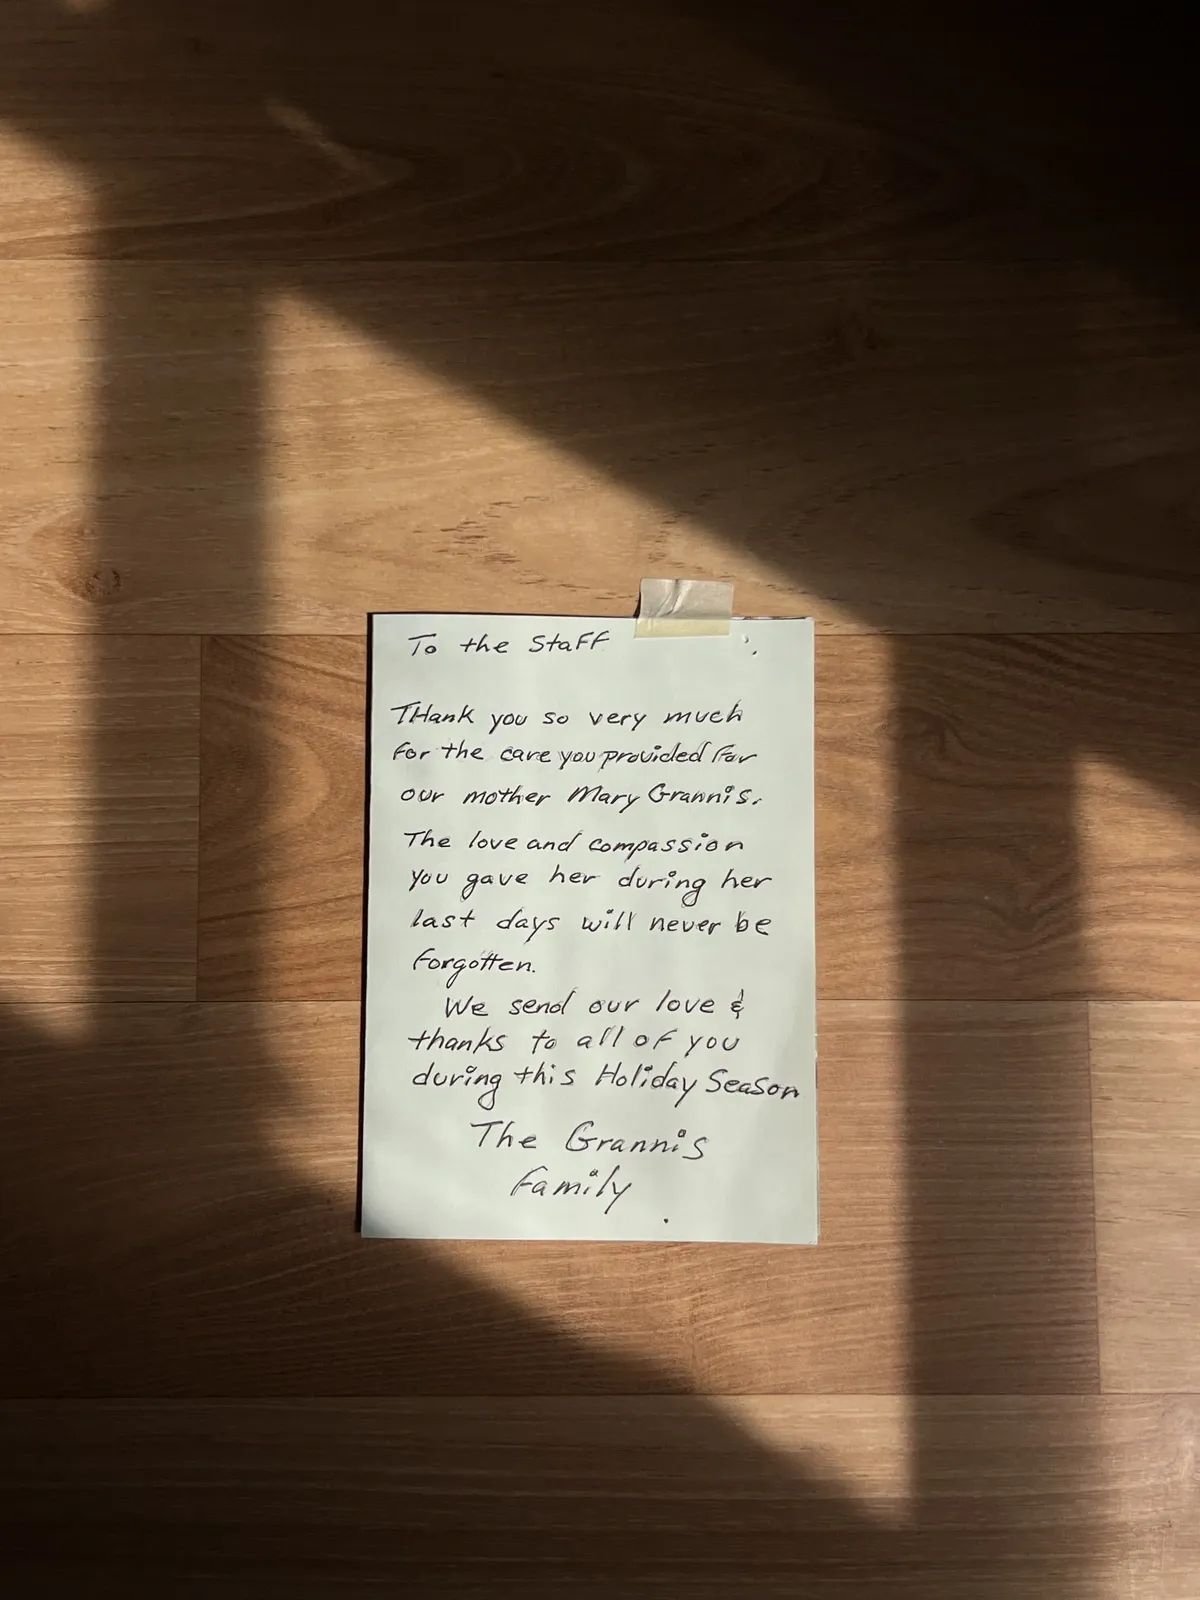 To the Staff
THank you so very much
for the care you provided for
our mother Mary Grannis.
The love and compassion
you gave her during her
last days will never be
forgotten.
We send our love &
thanks to all of you
during this Holiday Season
The Grannis
Family